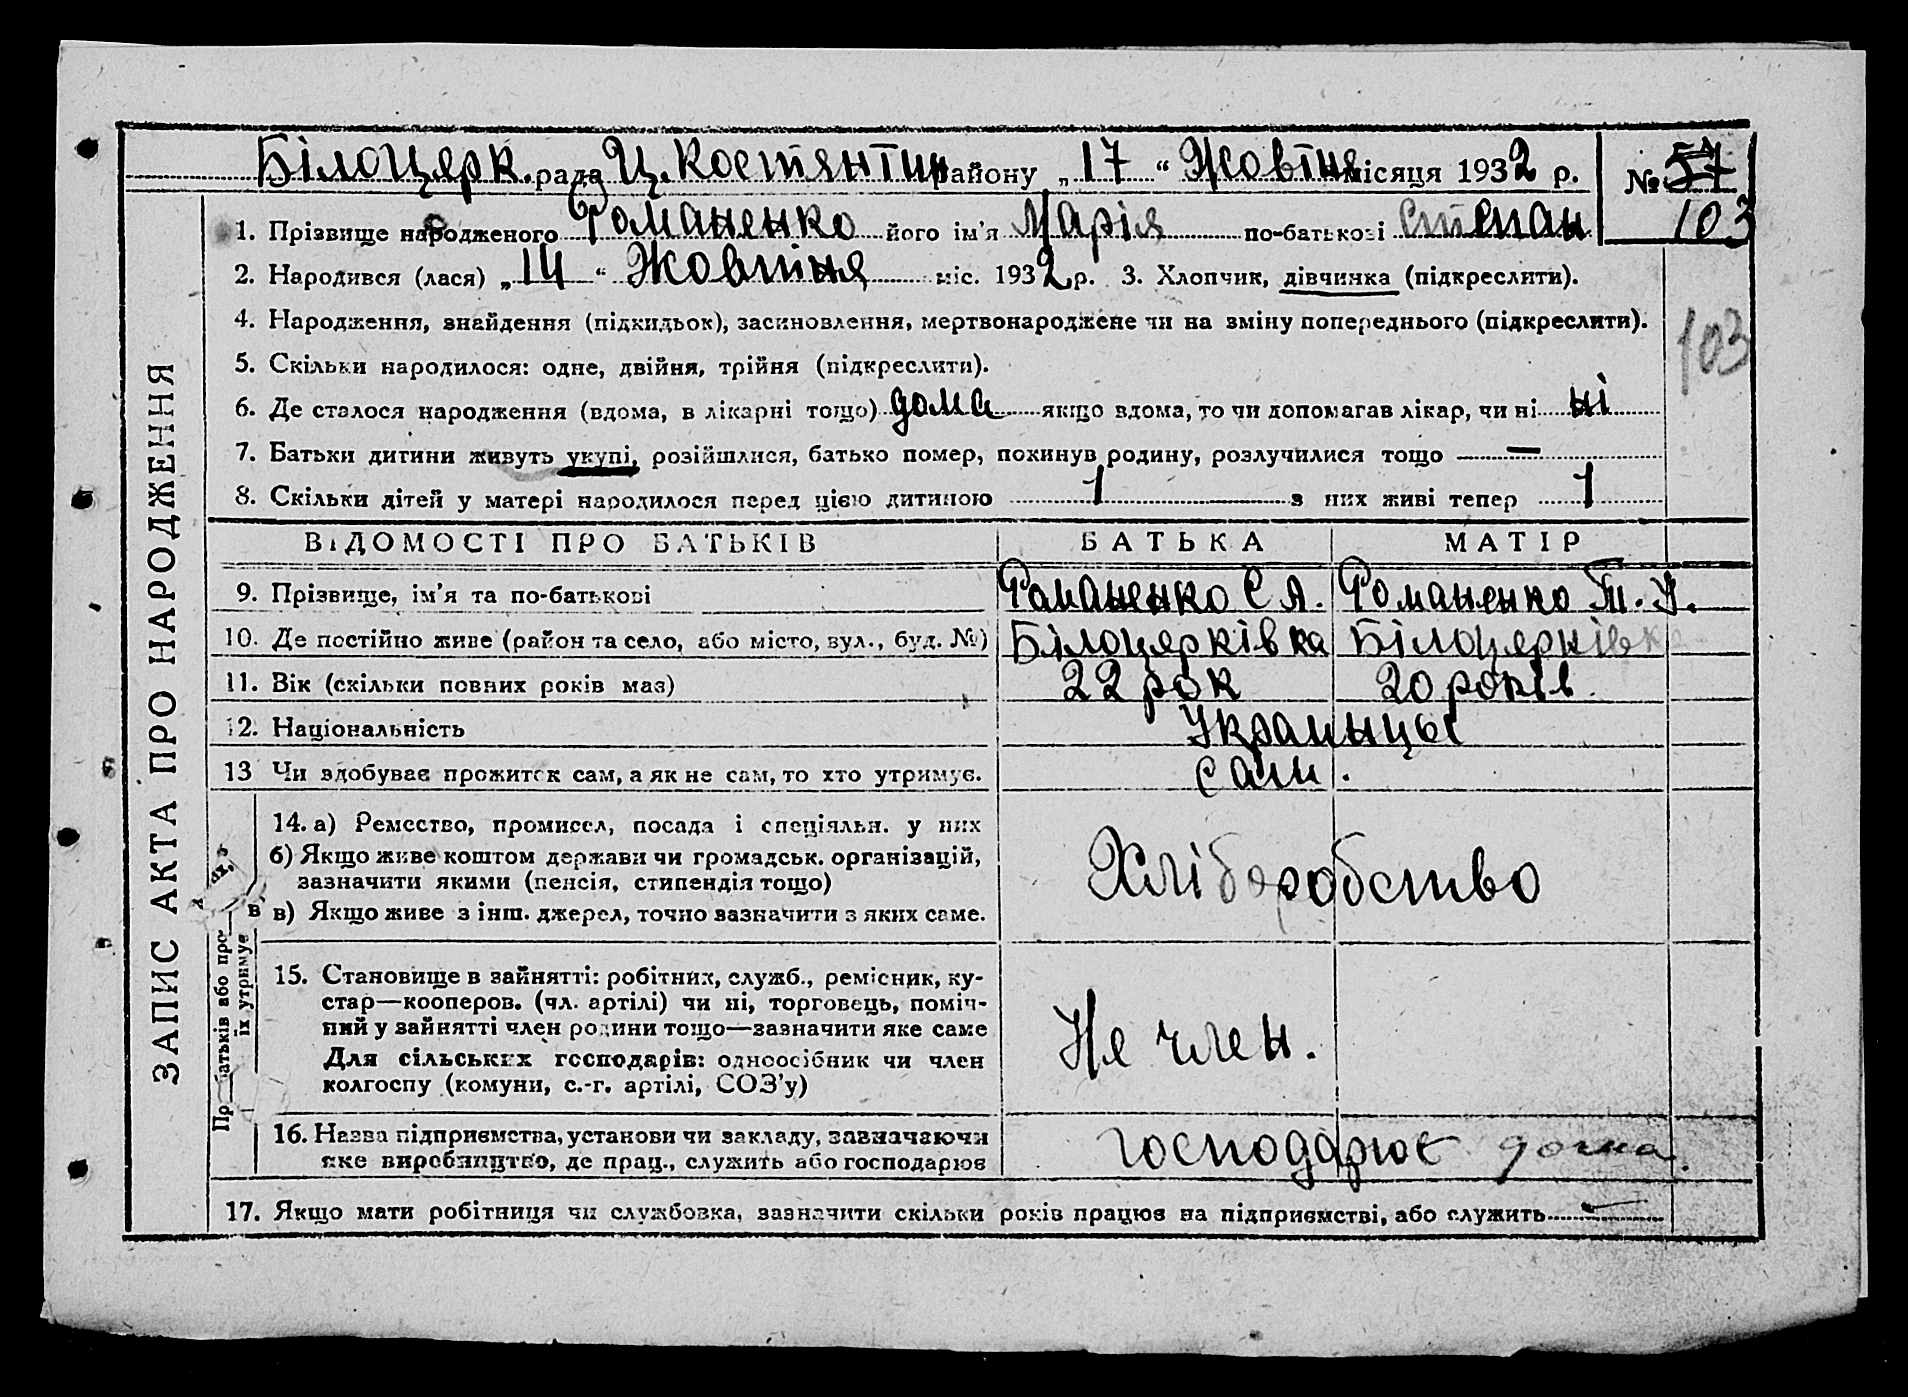 Білоцерк. рада Ц. Костянтин району „17“ Жовтня місяця 1932 р. № 57
103
1. Прізвище народженого Романенко його ім'я Марія по-батькові Степан
2. Народився (лася) „14“ Жовтня міс. 1932 р. 3. Хлопчик, дівчинка (підкреслити).
4. Народження, знайдення (підкидьок), засиновлення, мертвонароджене чи на зміну попереднього (підкреслити).
103
5. Скільки народилося: одне, двійня, трійня (підкреслити).
6. Де сталося народження (вдома, в лікарні тощо) дома якщо вдома, то чи допомагав лікар, чи ні ні
7. Батьки дитини живуть укупі, розійшлися, батько помер, покинув родину, розлучилися тощо —
8. Скільки дітей у матері народилося перед цією дитиною 1 з них живі тепер 1
ЗАПИС АКТА ПРО НАРОДЖЕННЯ
ВІДОМОСТІ ПРО БАТЬКІВ БАТЬКА МАТІР
9. Прізвище, ім'я та по-батькові Романенко С А. Романенко Т. У.
10. Де постійно живе (район та село, або місто, вул., буд. №) Білоцерківка Білоцерківка
11. Вік (скільки повних років має) 22 рок 20 років.
12. Національність Украинцы
13 Чи здобуває прожиток сам, а як не сам, то хто утримує. сами.
Пр батьків або про їх утримує
14. а) Ремество, промисел, посада і спеціяльн. у них
б) Якщо живе коштом держави чи громадськ. організацій,
зазначити якими (пенсія, стипендія тощо)
Хліборобство
в) Якщо живе з інш. джерел, точно зазначити з яких саме.
15. Становище в зайнятті: робітник, служб., ремісник, ку-
стар—кооперов. (чл. артілі) чи ні, торговець, поміч-
ний у зайнятті член родини тощо—зазначити яке саме
Не член.
Для сільських господарів: одноосібник чи член
колгоспу (комуни, с.-г. артілі, СОЗ'у)
16. Назва підприємства, установи чи закладу, зазначаючи
яке виробництво, де прац., служить або господарює
господарює дома.
17. Якщо мати робітниця чи службовка, зазначити скільки років працює на підприємстві, або служить —